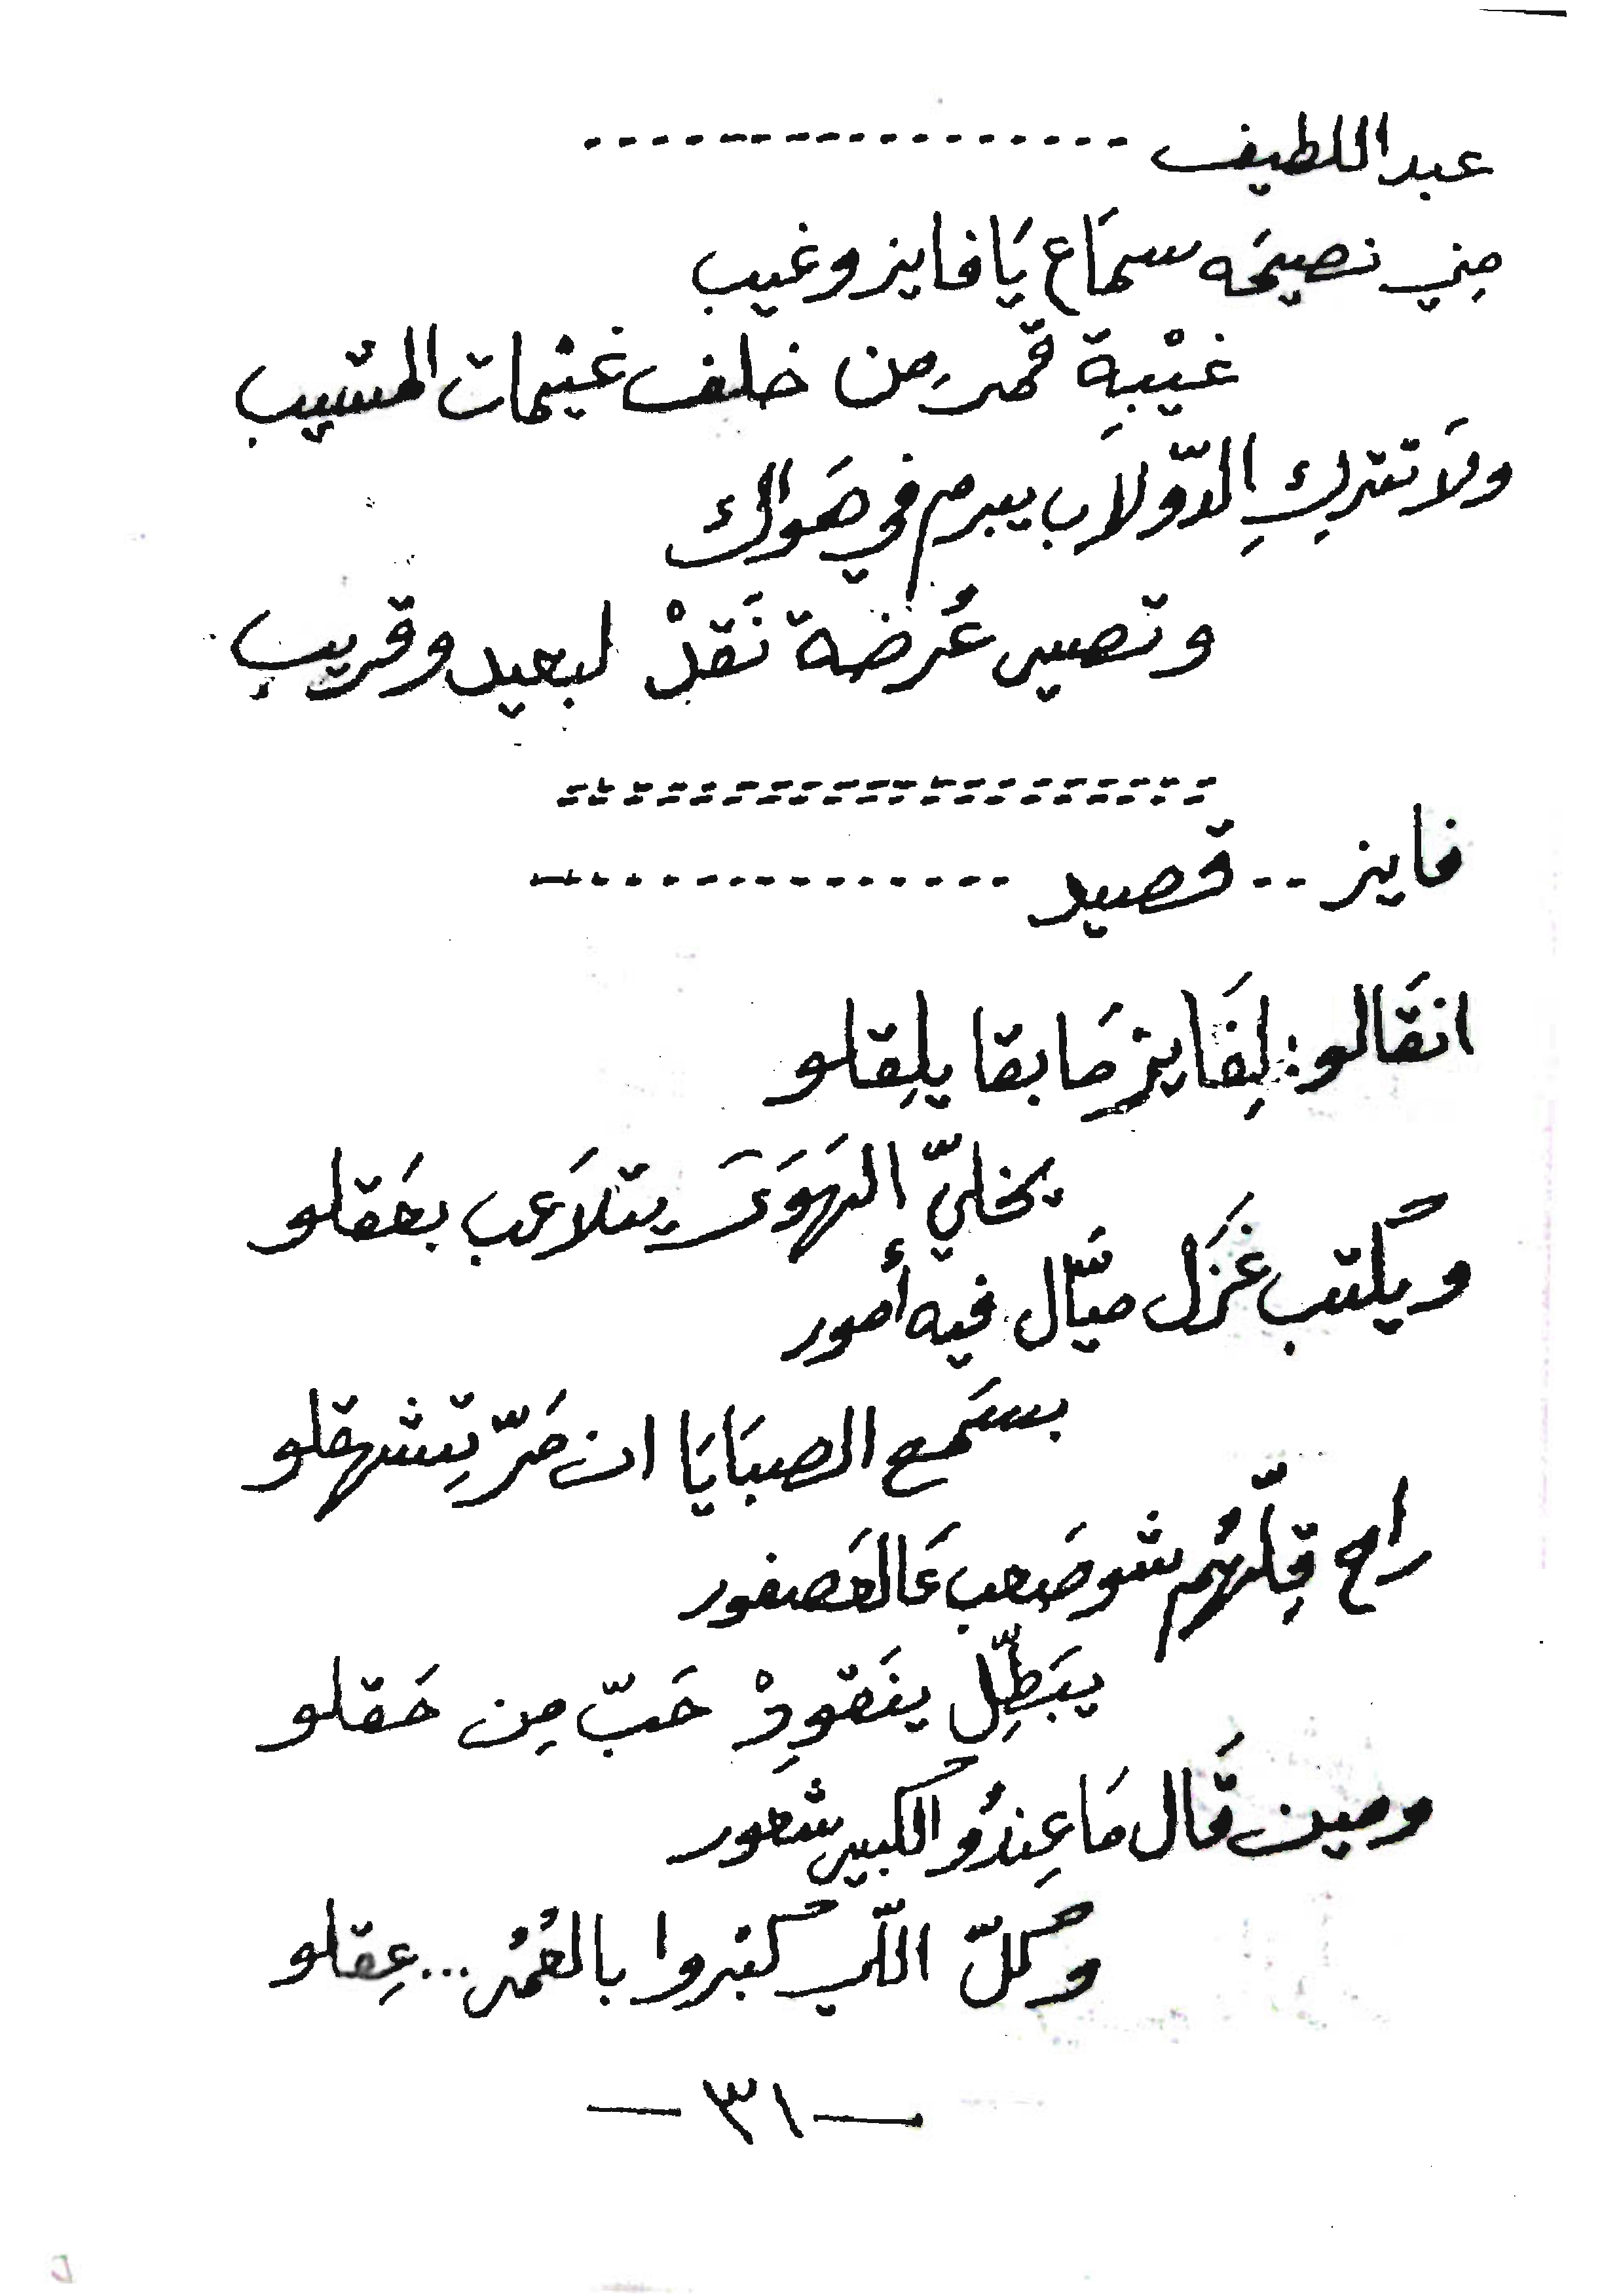 عبد اللطيف ------------------
مِني نصيحَه سماَع يَا فايز وغيب
غيْبِة قمر مِن خلف غيْمات المشيب
ولاَ تتركِ الدّولاَب يبرم في هَواك
وتصير عُرضة نَقدْ لبعيد وقريب
====================
فايز -- قصيد ---------------
انقَالو: لِفَايز مَا بقا يلِقلو
يخليّ الهَوَى يتلاَعب بعَقلو
ويكتب غزَل ميّال فيه أمور
بسَمع الصبَايَا ان مَرّ تِشهقلو
راح قِلّهُم شو صَعب عَالعَصفور
يبَطِّل ينَقوِدْ حَبّ مِن حَقلو
ومين قَال مَا عِندُو الكبير شعور
وكلّ اللّي كبروا بالعُمُر... عِقلو
— ٣١ —